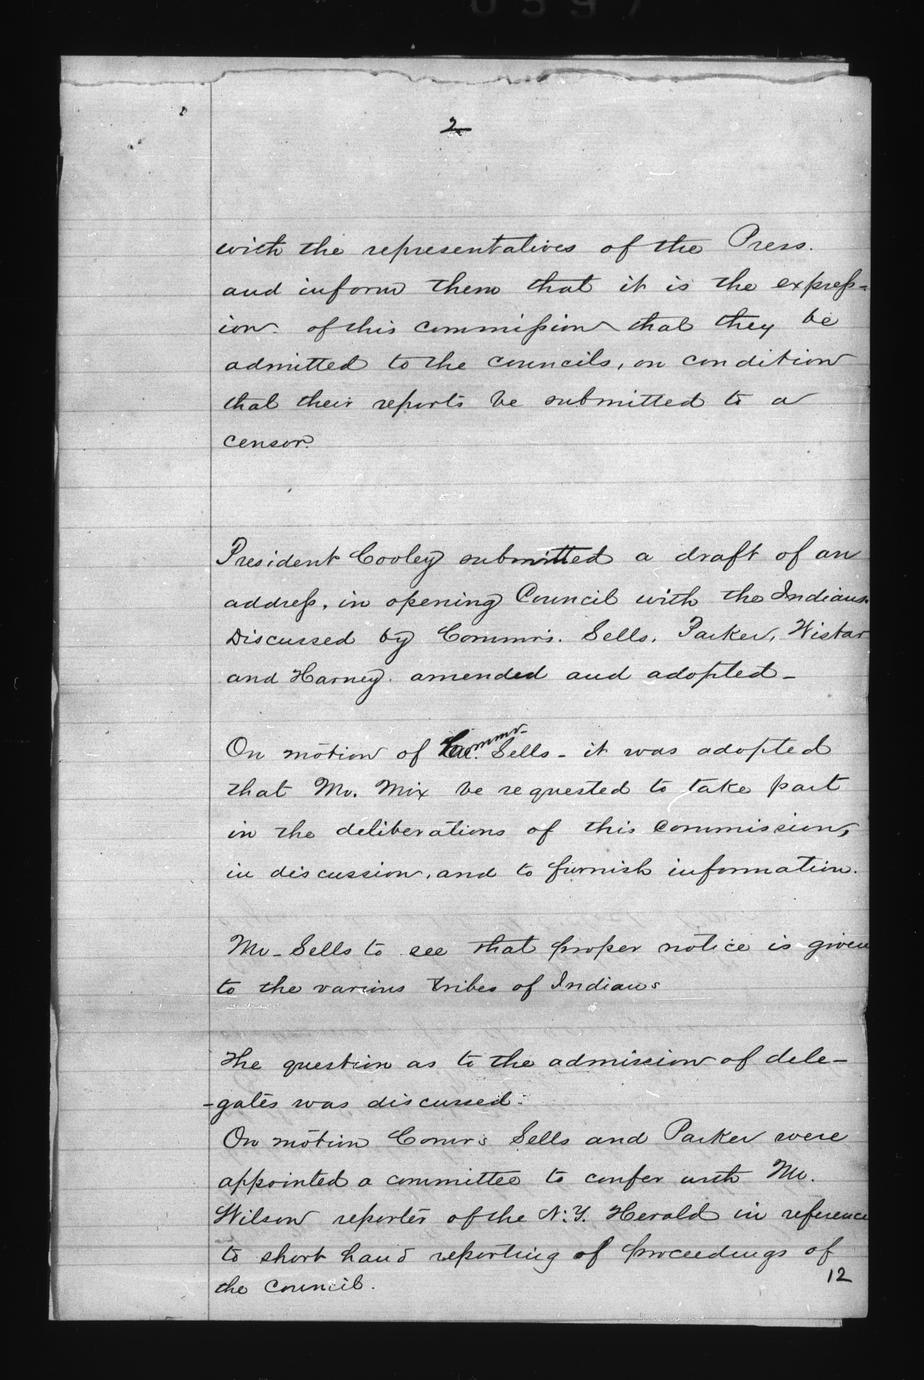 2
with the representatives of the Press.
and inform them that it is the express-
ion of this commission that they be
admitted to the councils, on condition
that their reports be submitted to a
censor.
President Cooley submitted a draft of an
address, in opening Council with the Indians
Discussed by Commrs. Sells, Parker, Wistar
and Harney. amended and adopted -
On motion of Commr. Sells - it was adopted
that Mr. Mix be requested to take part
in the deliberations of this commission,
in discussion, and to furnish information.
Mr. Sells to see that proper notice is given
to the various tribes of Indians
The question as to the admission of dele-
-gates was discussed.
On motion Comrs Sells and Parker were
appointed a committee to confer with Mr.
Wilson reporter of the N.Y. Herald in reference
to short hand reporting of proceedings of
the council.
12